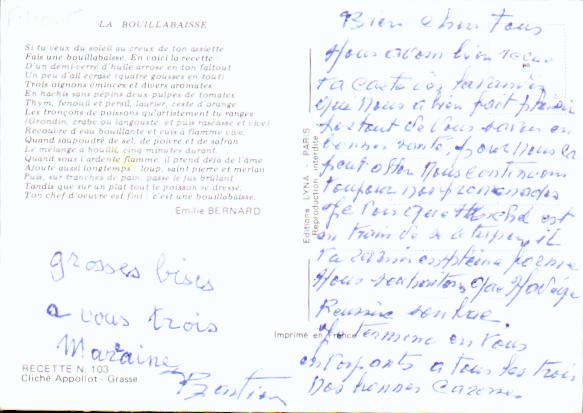 LA BOUILLABAISSE
Si tu veux du soleil au creux de ton assiette
Fais une bouillabaisse. En voici la recette
D'un demi-verre d'huile arrose en ton faitout
Un peu d'ail écrasé (quatre gousses en tout)
Trois oignons émincés et divers aromates
En hachis sans pépins deux pulpes de tomates
Thym, fenouil et persil, laurier, zeste d'orange
Les tronçons de poissons qu'artistement tu ranges
(Grondin, crabe ou langouste, et puis rascasse et vive)
Recouvre d'eau bouillante et cuis à flamme vive.
Quand saupoudré de sel, de poivre et de safran
Le mélange a bouilli, cinq minutes durant.
Quand sous l'ardente flamme, il prend déjà de l'âme
Ajoute aussi longtemps : loup, saint pierre et merlan
Puis, sur tranches de pain, passe le jus brûlant
Tandis que sur un plat tout le poisson se dresse.
Ton chef-d'oeuvre est fini : c'est une bouillabaisse.
Emilie BERNARD
grosses bises
a vous trois
Maraine
Bastien
RECETTE N. 103
Cliché Appollot - Grasse
Editions LYNA - PARIS
Reproduction interdite
Imprimé en France
Bien cher tous
Nous avons bien reçue
ta carte
que nous a bien fait plaisir
de vous savoir en
bonnes santé, pour nous ca
peut aller Nous continuons
toujour nos promenades
est
en train de se il
Nous souhaitons que
Reussira
Je termine en vous
a tous les trois
nos bonnes caresses.